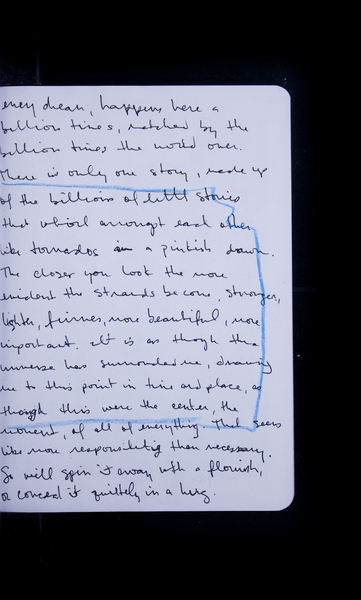 every dream, happens here a
billion times, matched by the
billion times the world over.
There is only one story, made up
of the billions of little stories
that whirl amongst each other
like tornados in a pinkish dawn.
The closer you look the more
evident the strands become, stronger,
lighter, firmer, more beautiful, more
important. It is as though the
universe has surrounded me, drawing
me to this point in time and place, as
though this were the center, the
moment, of all of everything. That seems
like more responsibility than necessary.
So will spin it away with a flourish,
or conceal it quietly in a hug.